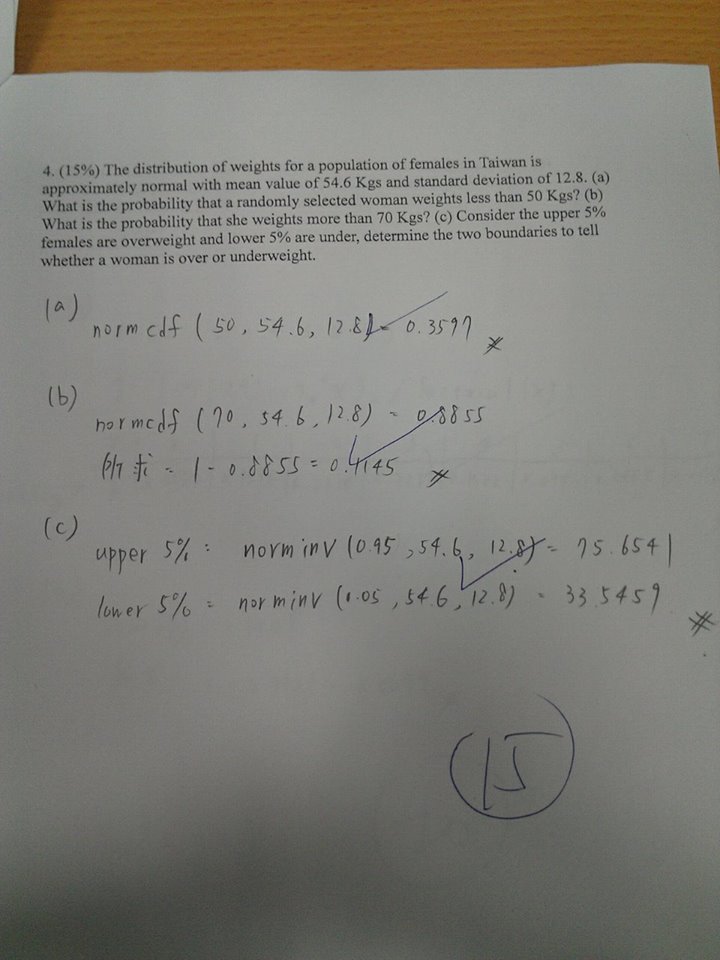 4. (15%) The distribution of weights for a population of females in Taiwan is
approximately normal with mean value of 54.6 Kgs and standard deviation of 12.8. (a)
What is the probability that a randomly selected woman weights less than 50 Kgs? (b)
What is the probability that she weights more than 70 Kgs? (c) Consider the upper 5%
females are overweight and lower 5% are under, determine the two boundaries to tell
whether a woman is over or underweight.
(a)
normcdf (50, 54.6, 12.8) = 0.3597
(b)
normcdf (70, 54.6, 12.8) = 0.8855
所求 = 1 - 0.8855 = 0.1145
(c)
upper 5% : norminv (0.95, 54.6, 12.8) = 75.6541
lower 5% = norminv (0.05, 54.6, 12.8) = 33.5459
15